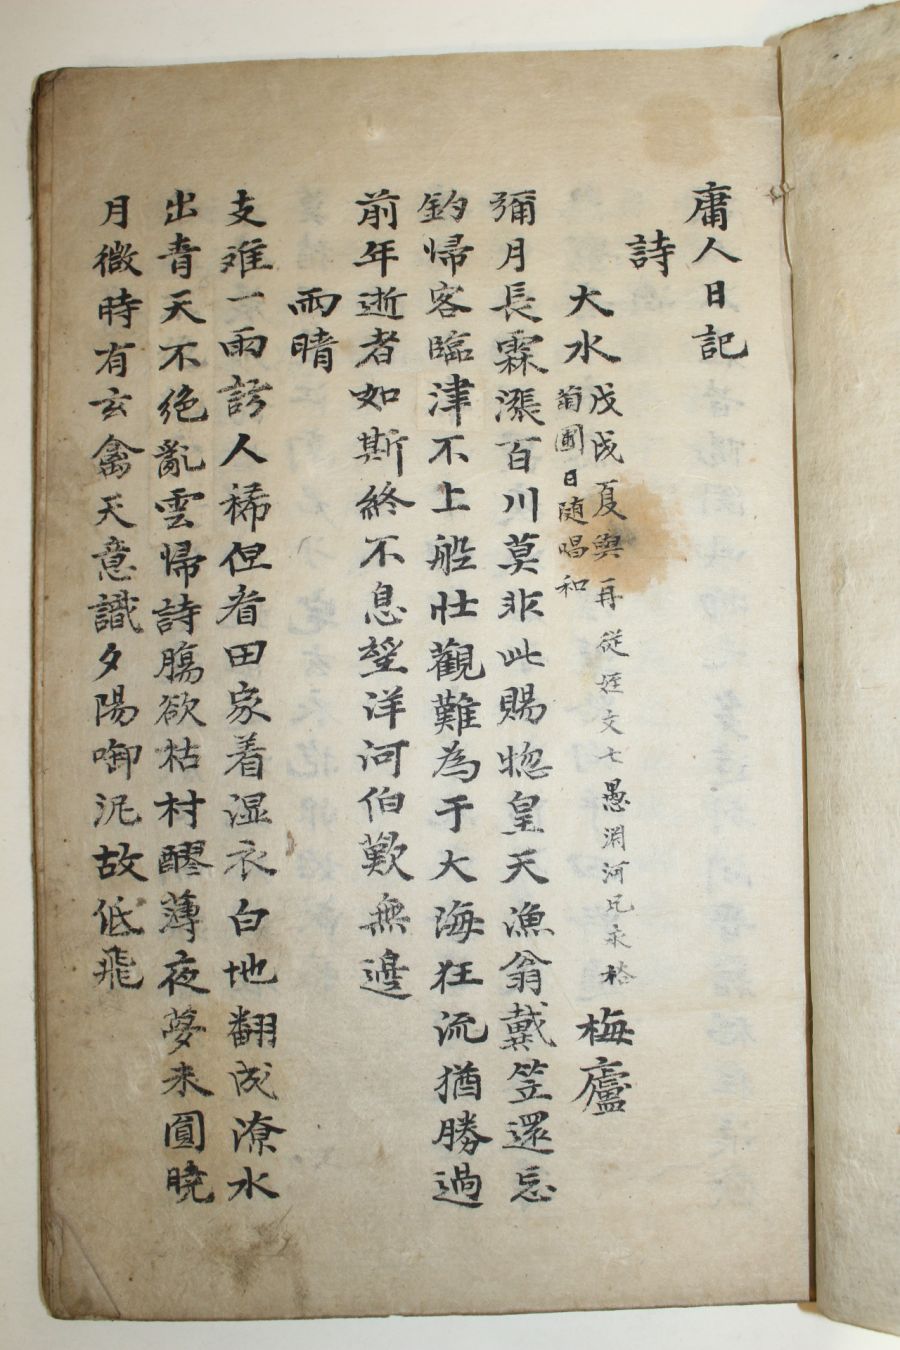 庸人日記
詩
大水 戊戌夏與再從姪文七愚淵河兄永
菊圃日随唱和 梅廬
彌月長霖漲百川莫非此賜惚皇天漁翁戴笠還忘
釣歸客臨津不上船壯觀難為于大海狂流猶勝過
前年逝者如斯終不息望洋河伯歎無邊
雨晴
支难一雨訪人稀但看田家着湿衣白地翻成潦水
出青天不絶亂雲帰詩膓欲枯村醪薄夜夢来圓曉
月微時有玄禽天意識夕陽啣泥故低飛